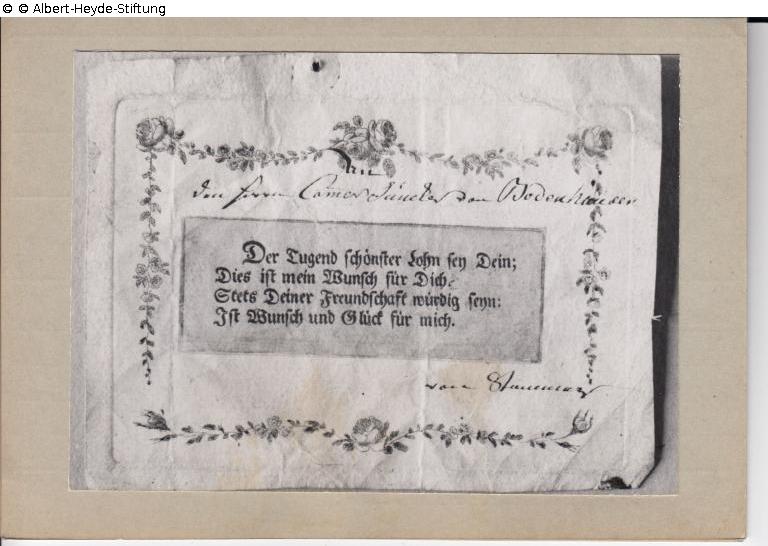 © © Albert-Heyde-Stiftung
An
den Herrn Camer Juncker von Bodenhausen
Der Tugend schönster Lohn sey Dein;
Dies ist mein Wunsch für Dich
Stets Deiner Freundschaft würdig seyn:
Ist Wunsch und Glück für mich.
von